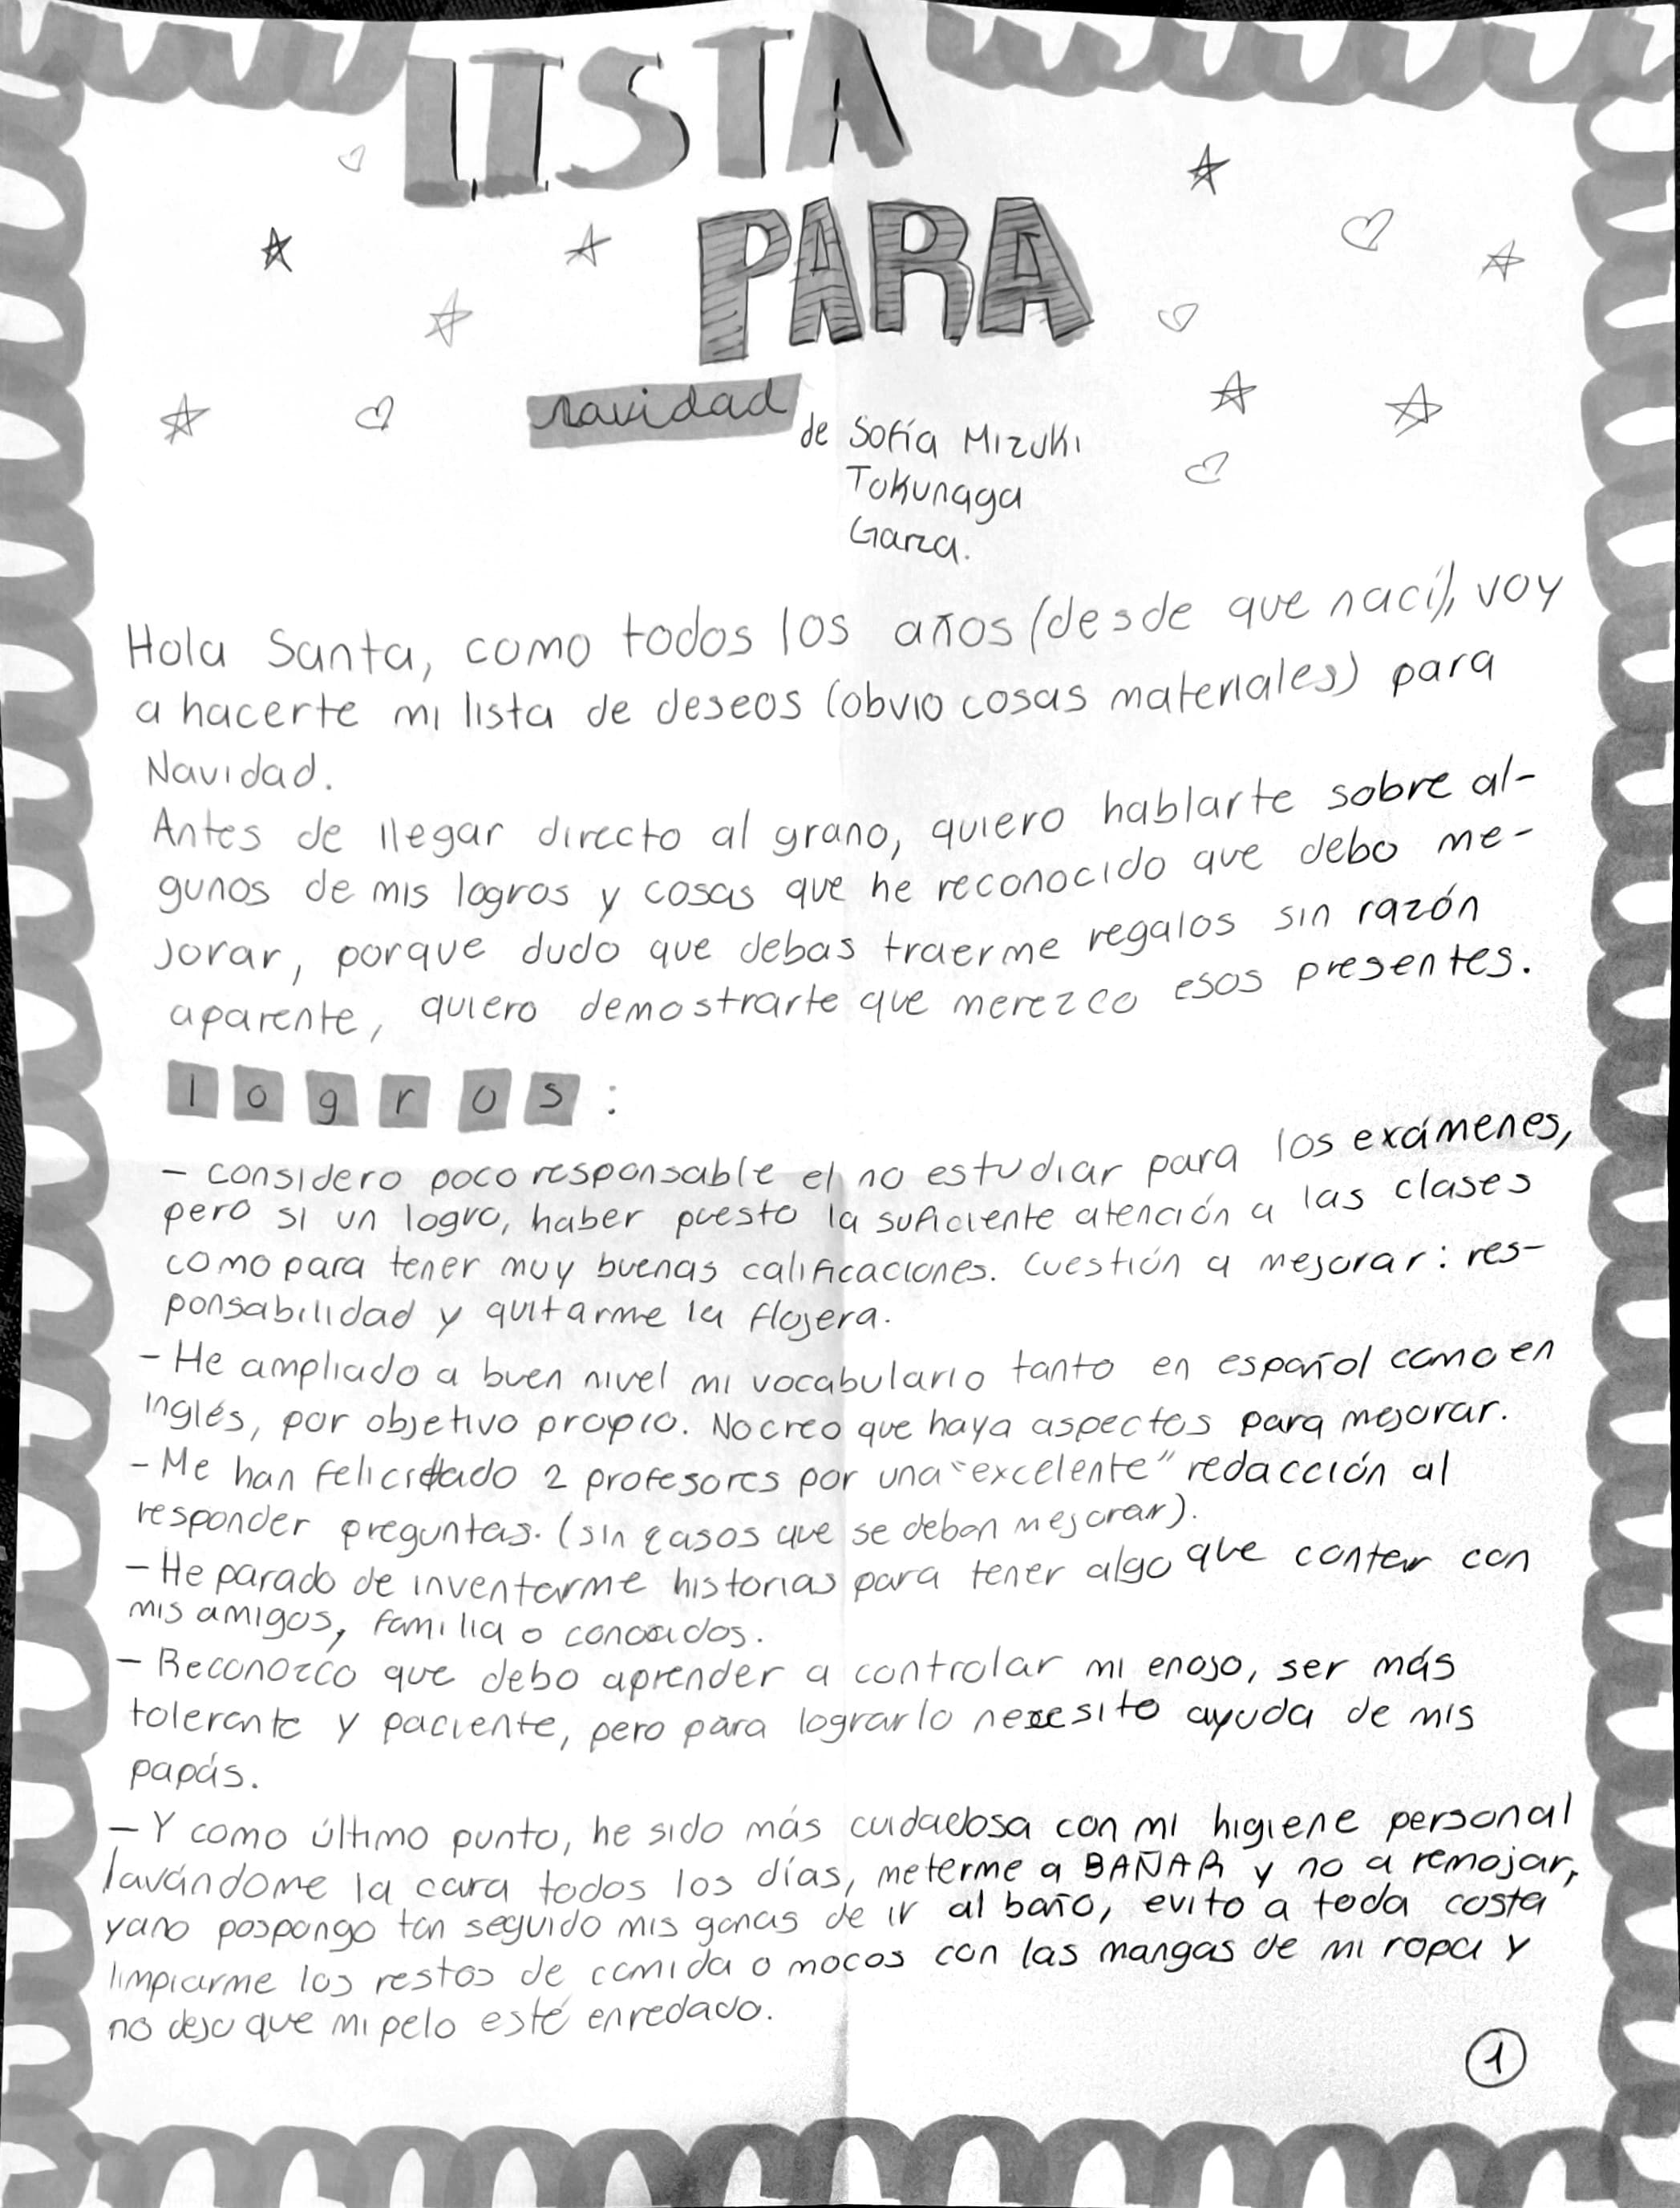 LISTA
PARA
navidad
de Sofía Mizuki
Tokunaga
Garza.
Hola Santa, como todos los años (desde que nací), voy
a hacerte mi lista de deseos (obvio cosas materiales) para
Navidad.
Antes de llegar directo al grano, quiero hablarte sobre al-
gunos de mis logros y cosas que he reconocido que debo me-
jorar, porque dudo que debas traerme regalos sin razón
aparente, quiero demostrarte que merezco esos presentes.
logros:
- considero poco responsable el no estudiar para los exámenes,
pero si un logro, haber puesto la suficiente atención a las clases
como para tener muy buenas calificaciones. Cuestión a mejorar: res-
ponsabilidad y quitarme la flojera.
- He ampliado a buen nivel mi vocabulario tanto en español como en
inglés, por objetivo propio. No creo que haya aspectos para mejorar.
- Me han felicitado 2 profesores por una "excelente" redacción al
responder preguntas. (sin casos que se deban mejorar).
- He parado de inventarme historias para tener algo que contar con
mis amigos, familia o conocidos.
- Reconozco que debo aprender a controlar mi enojo, ser más
tolerante y paciente, pero para lograrlo necesito ayuda de mis
papás.
- Y como último punto, he sido más cuidadosa con mi higiene personal
lavándome la cara todos los días, meterme a BAÑAR y no a remojar,
ya no pospongo tan seguido mis ganas de ir al baño, evito a toda costa
limpiarme los restos de comida o mocos con las mangas de mi ropa y
no dejo que mi pelo esté enredado.
1